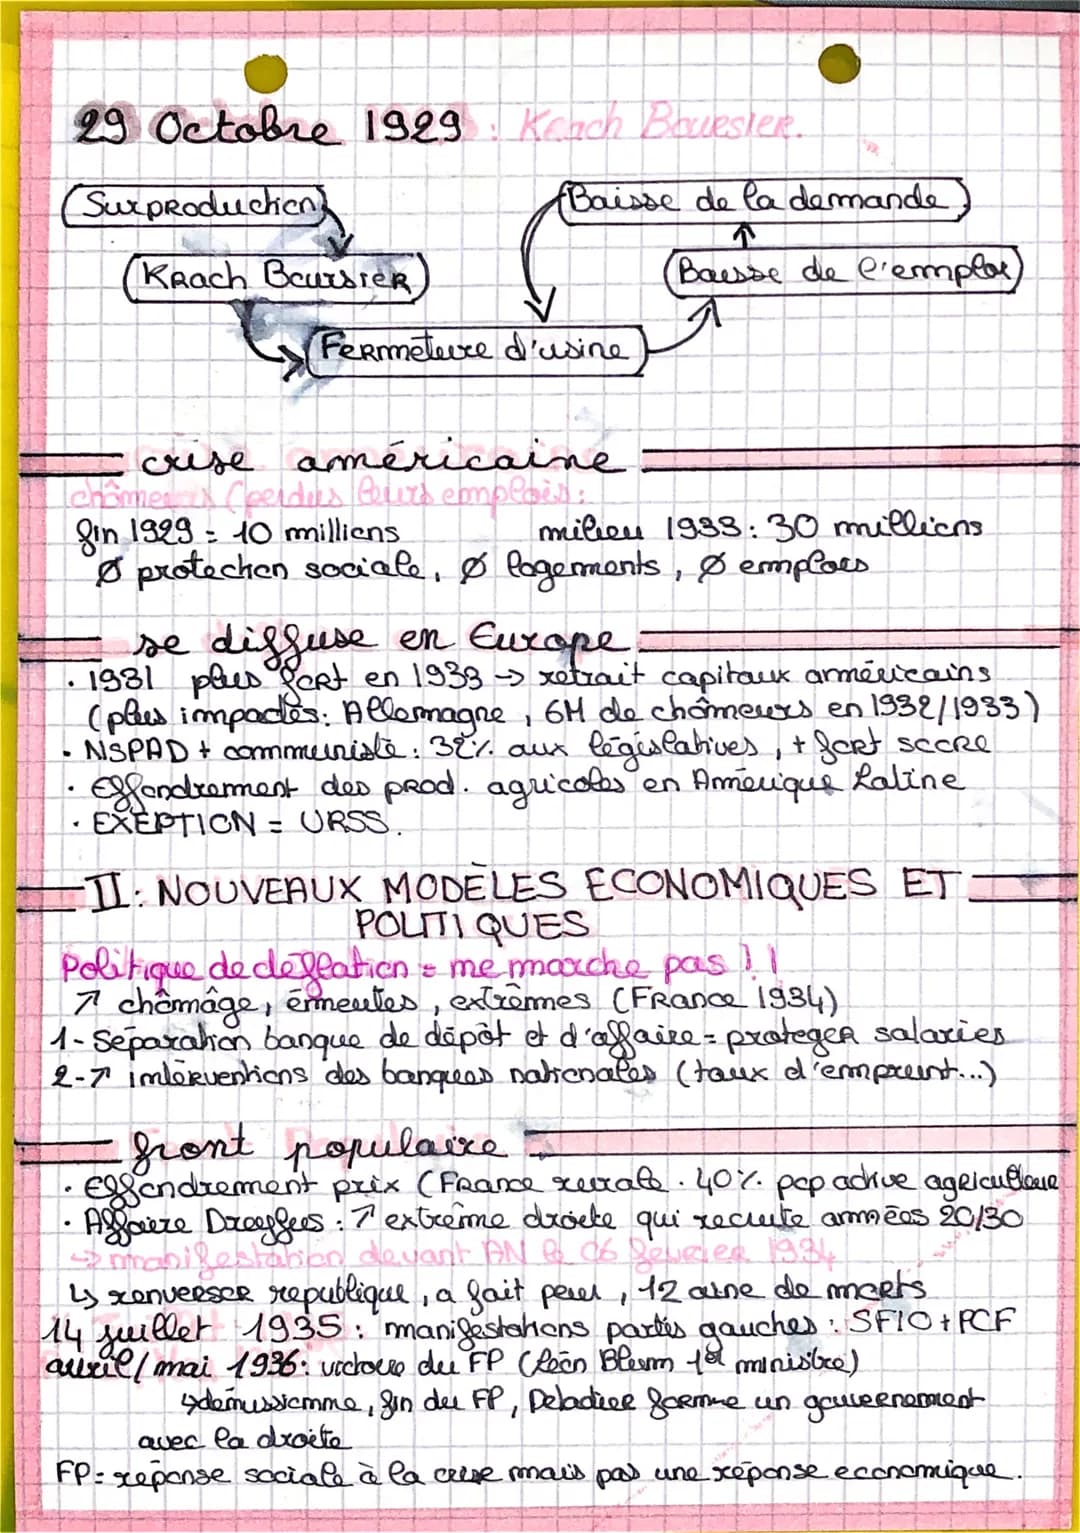 29 Octobre 1929 : Krach Boursier.
Surproduction
Baisse de la demande
Krach Boursier
Baisse de l'emploi
Fermeture d'usine
crise américaine
chômeurs (perdus leurs emplois:
fin 1929 = 10 millions milieu 1933: 30 millions
Ø protection sociale, Ø logements, Ø emplois
se diffuse en Europe
· 1931 plus fort en 1933 → retrait capitaux américains
(plus impactés: Allemagne, 6M de chômeurs en 1932/1933)
· NSPAD + communiste: 32% aux législatives, + fort score
· Effondrement des prod. agricoles en Amérique Latine
· EXEPTION = URSS.
II: NOUVEAUX MODÈLES ECONOMIQUES ET
POLITIQUES
Politique de déflation = ne marche pas !!
↗ chômâge, émeutes, extrêmes (France 1934)
1- Séparation banque de dépôt et d'affaire = proteger salaries
2- ↗ interventions des banques nationales (taux d'emprunt...)
front populaire
· Effondrement prix (France rurale. 40% pop active agriculteur
· Affaire Dreyfus: ↗ extrême droite qui recrute années 20/30
→ manifestation devant AN le 06 fevrier 1934
↳ renverser republique, a fait peur, 12 aine de morts
14 juillet 1935: manifestations partis gauches: SFIO + PCF
avril/mai 1936: victoire du FP (Léon Blum 1er ministre)
↳ démissionne, fin du FP, Deladier forme un gouvernement
avec la droite
FP = réponse sociale à la crise mais pas une réponse economique.